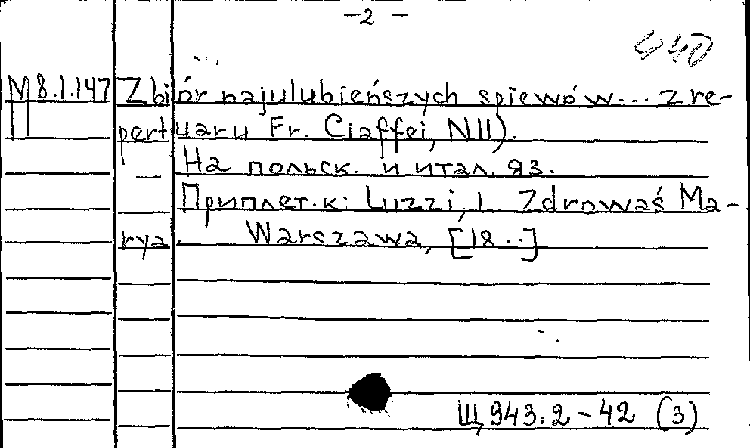 -2-
440
M 8.1.147 Zbiór najulubieńszych spiewów... z re-
pertuaru Fr. Ciaffei, NII).
На польск. и итал. яз.
— Приплет. к: Luzzi, L. Zdrowaś Ma-
rya. Warszawa, [18..]
Щ943.2-42 (3)